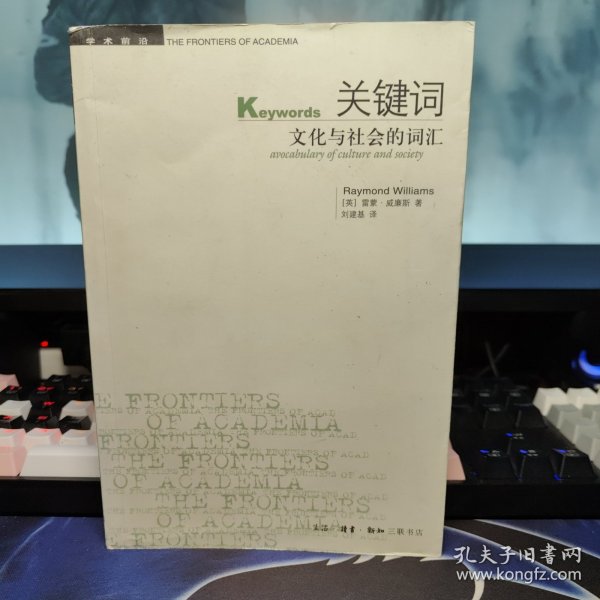 学术前沿 THE FRONTIERS OF ACADEMIA
Keywords 关键词
文化与社会的词汇
avocabulary of culture and society
Raymond Williams
[英] 雷蒙·威廉斯 著
刘建基 译
E FRONTIERS
OF ACADEMIA
FRONTIERS
THE FRONTIERS
OF ACADEMIA
THE FRONTIERS
OF ACADEMIA
生活·读书·新知三联书店
孔夫子旧书网
www.kongfz.com